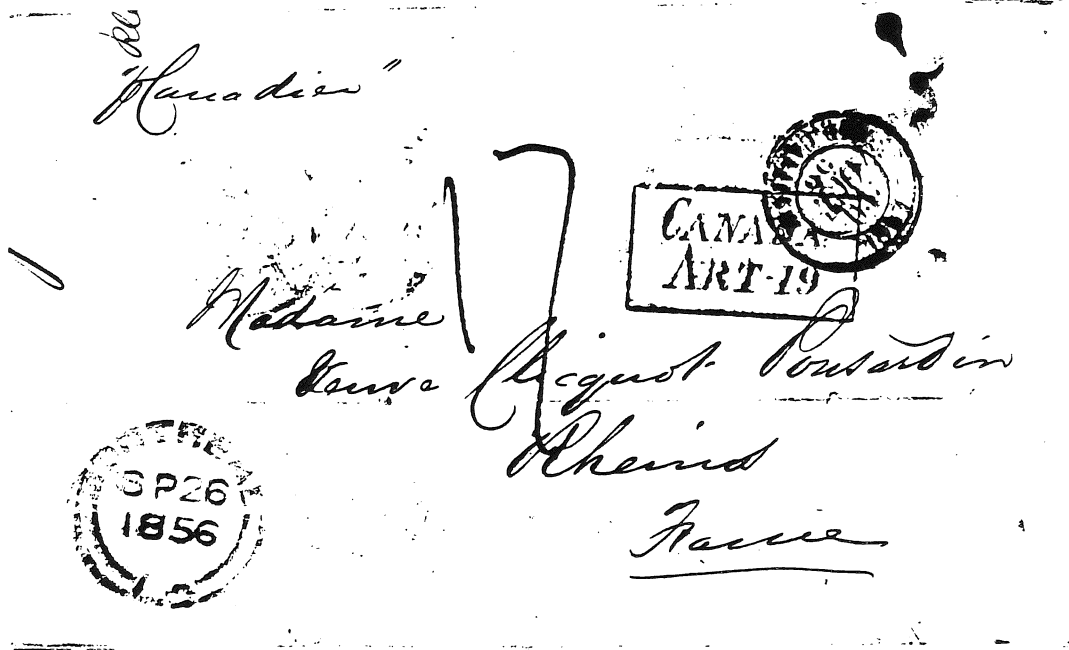 "Canadien"
17
CANADA
ART-19
Madame
Veuve Clicquot Ponsardin
Rheims
France
MONTREAL
SP 26
1856